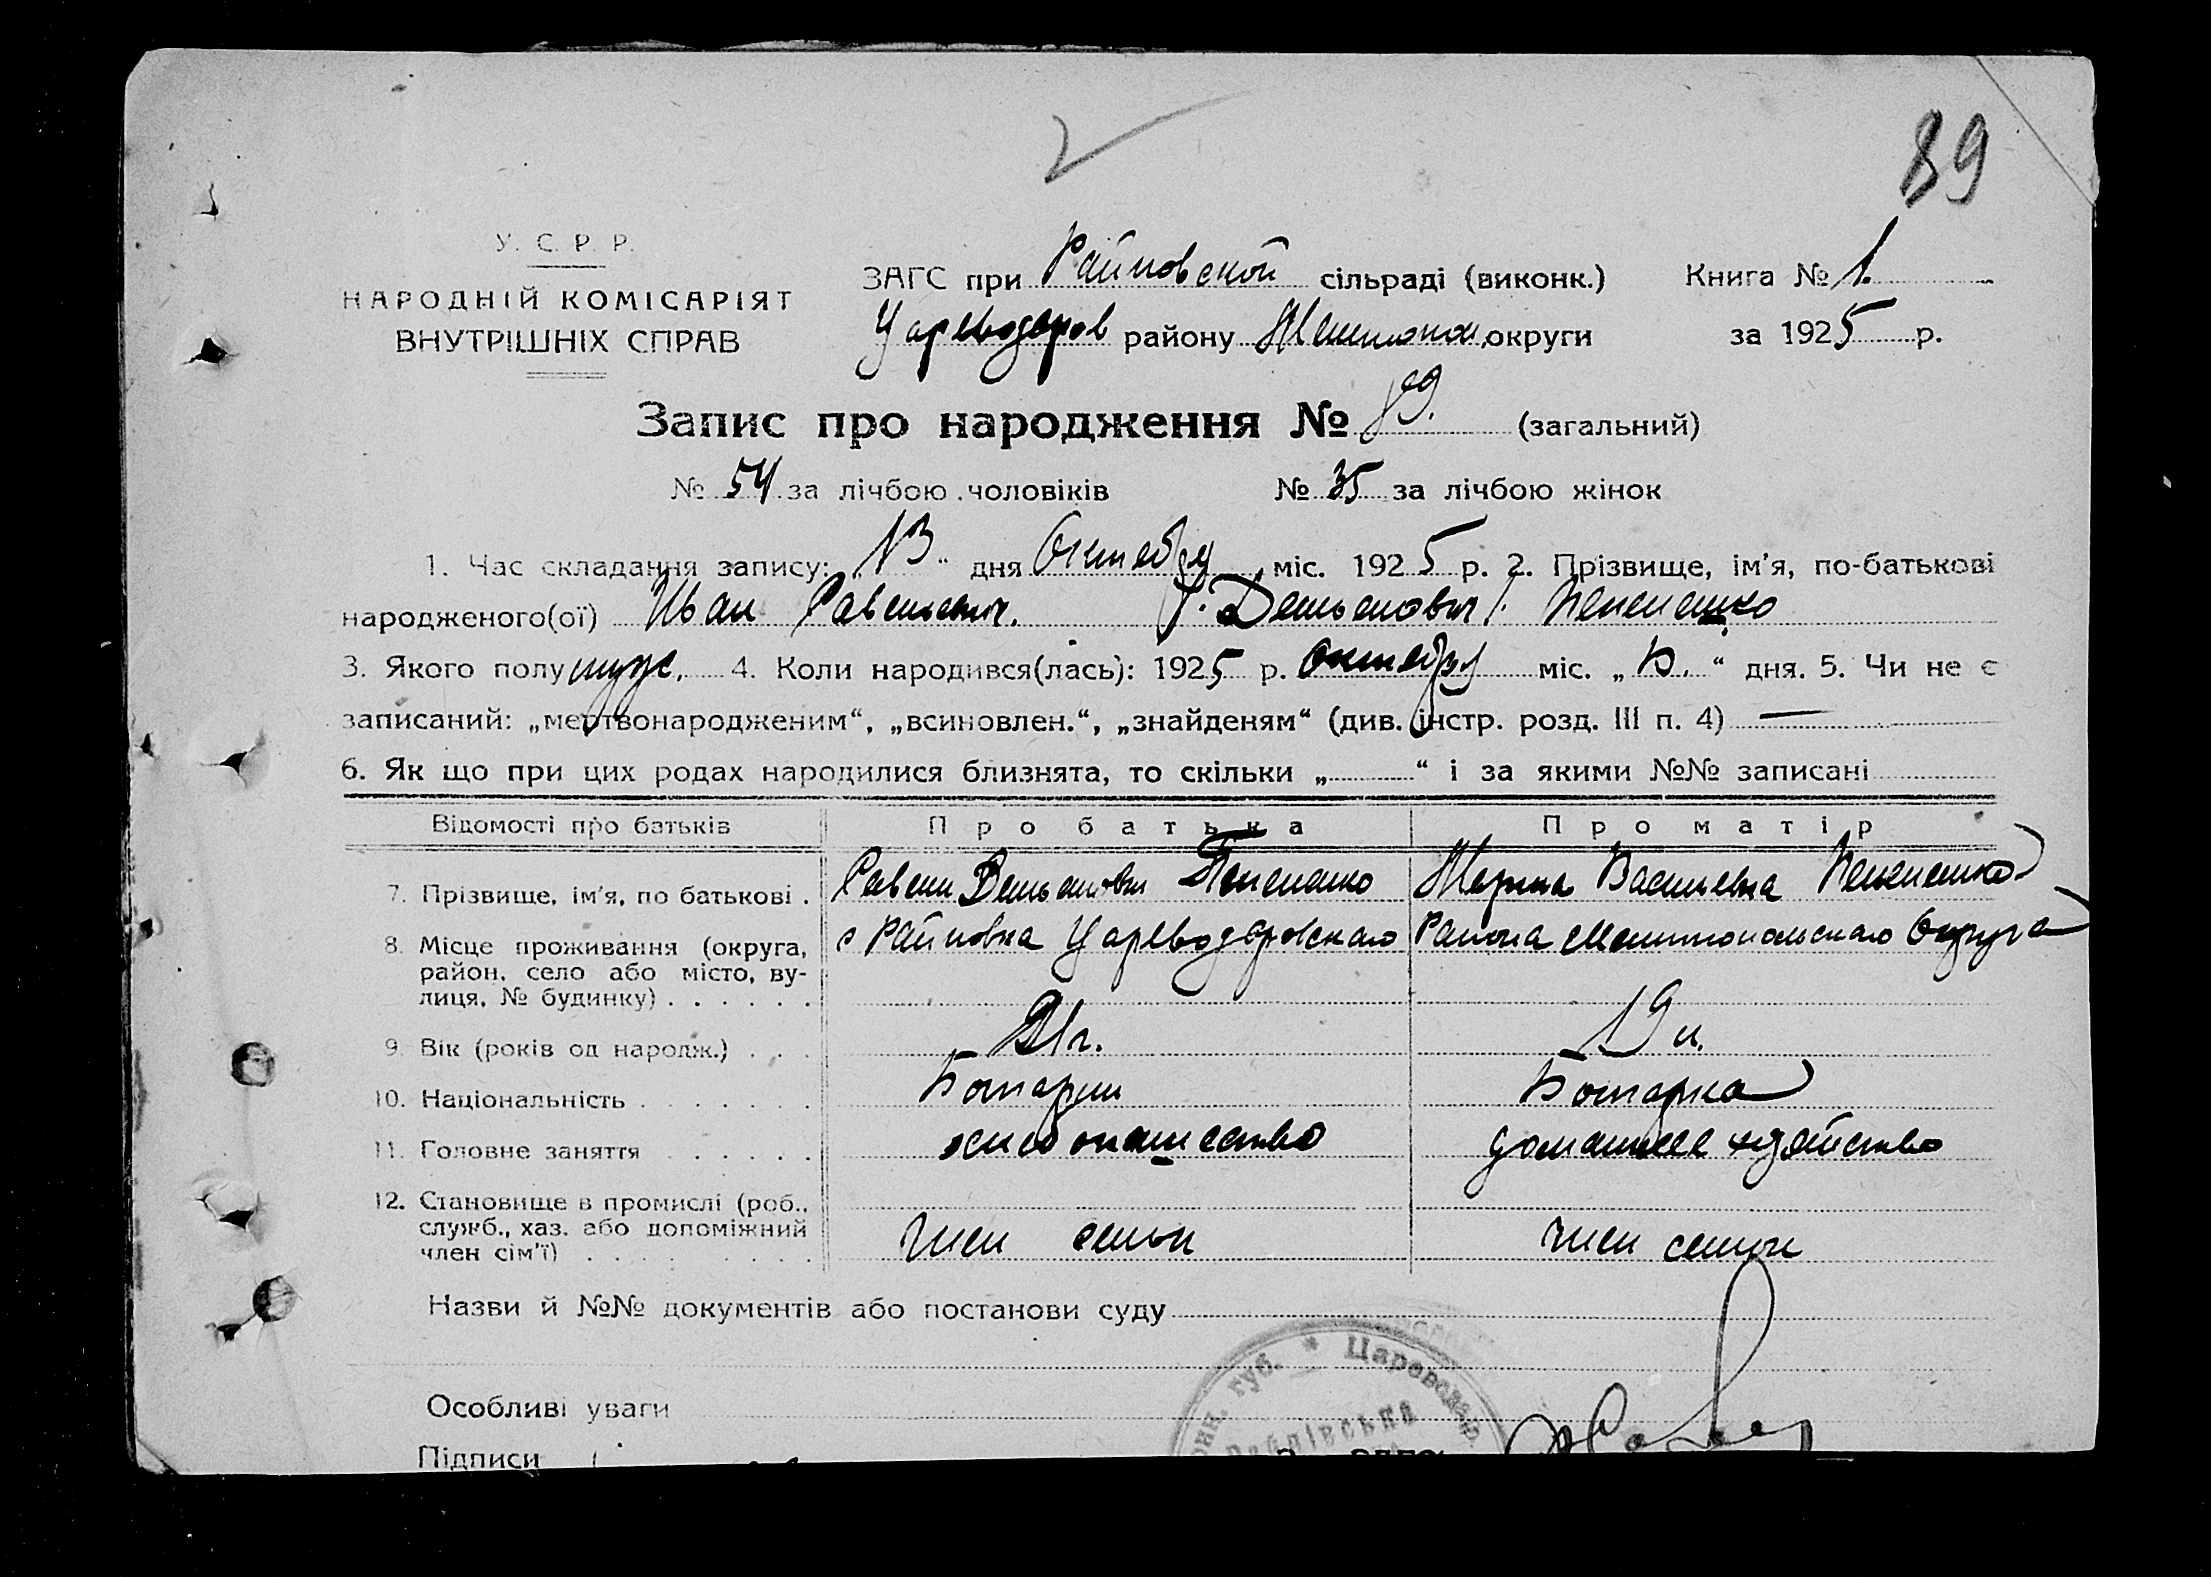 89
У. С. Р. Р.
НАРОДНІЙ КОМІСАРІЯТ
ВНУТРІШНІХ СПРАВ
ЗАГС при Райновской сільраді (виконк.) Книга № 1.
Цареводаров району Мелитопол. округи за 1925 р.
Запис про народження № 89. (загальний)
№ 54 за лічбою чоловіків № 35 за лічбою жінок
1. Час складання запису: „13“ дня Октября міс. 1925 р. 2. Прізвище, ім'я, по-батькові
народженого(ої) Иван Савельевич.
3. Якого полу муж. 4. Коли народився(лась): 1925 р. Октября міс. „ “ дня. 5. Чи не є
записаний: „мертвонародженим“, „всиновлен.“, „знайденям“ (див. інстр. розд. III п. 4) —
6. Як що при цих родах народилися близнята, то скільки „ “ і за якими №№ записані
Відомості про батьків Про батька Про матір
7. Прізвище, ім'я, по батькові . Савели Васильевна
8. Місце проживання (округа, район, село або місто, вулиця, № будинку) . . . . . . с Райновка Цареводаровскаго Района Мелитопольскаго Округа
9. Вік (років од народж.) . . . 21 г. 19 л.
10. Національність . . . . . . . Болгарин Болгарка
11. Головне заняття . . . . . . хлебопашество домашнее хозяйство
12. Становище в промислі (роб., служб., хаз. або допоміжний член сім'ї) . . . . . . . член семьи член семьи
Назви й №№ документів або постанови суду
губ. * Цареводар.
Райнівська
Особливі уваги
Підписи